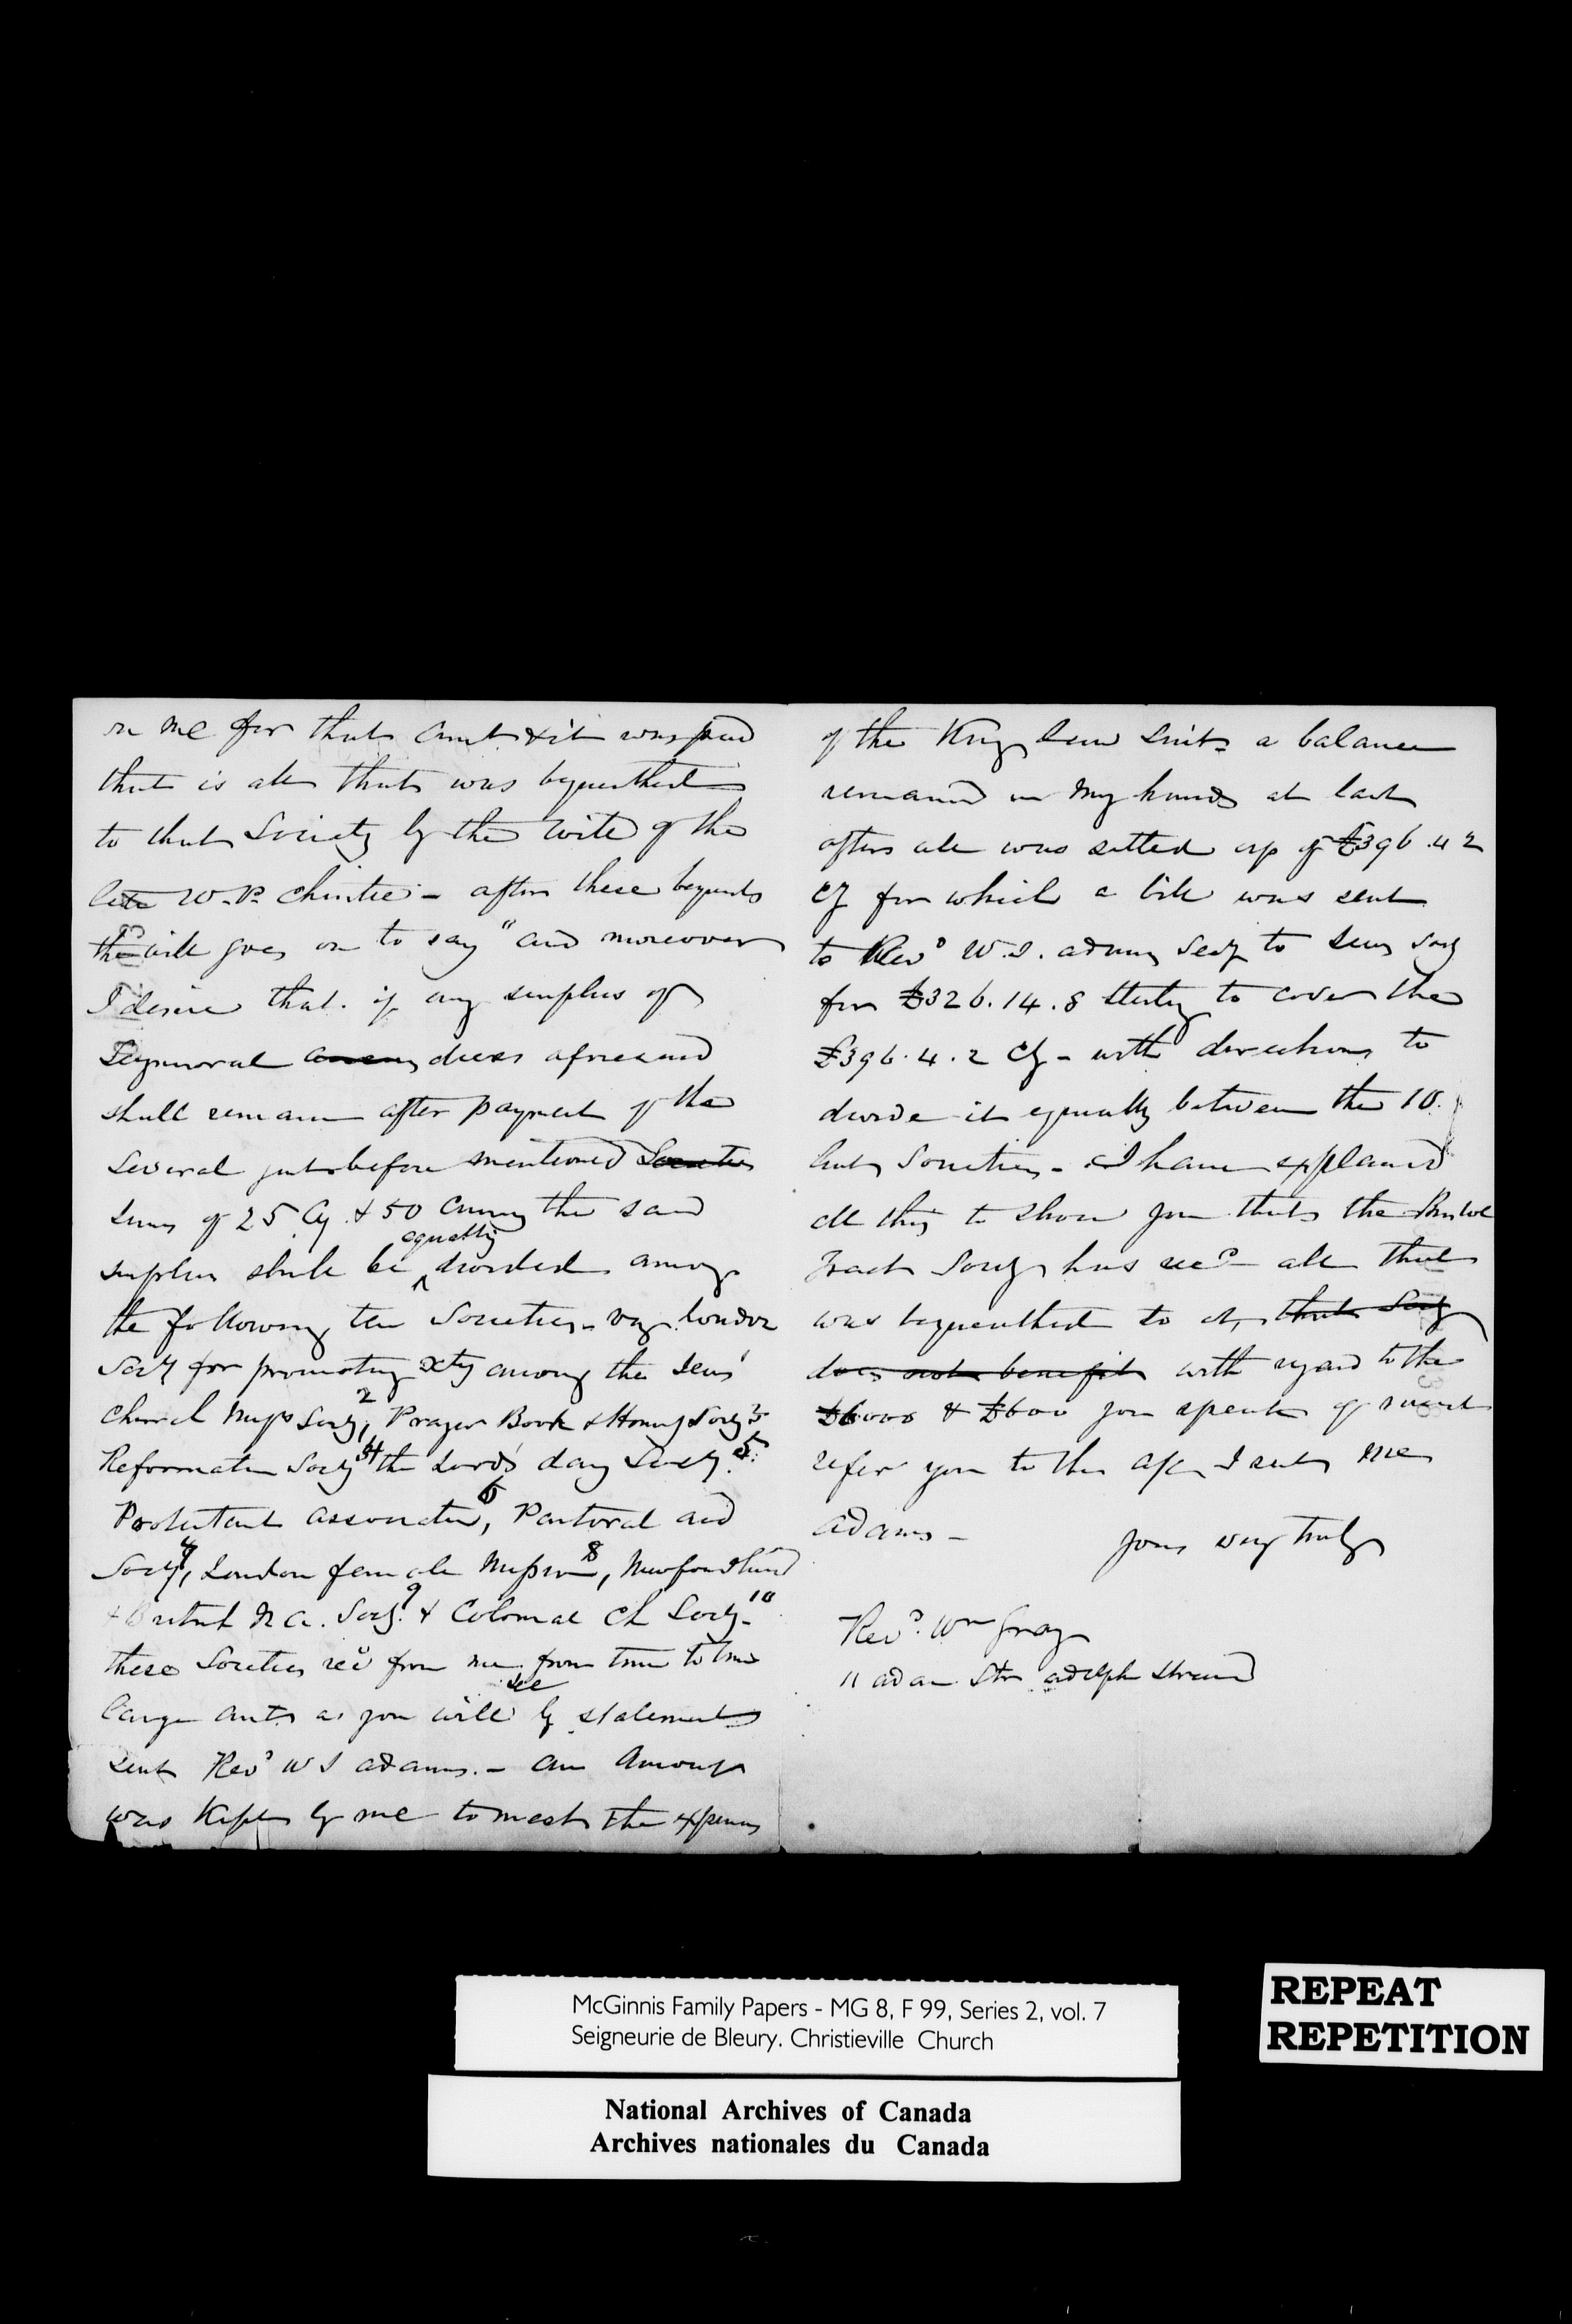 on me for that amt & it was paid
that is all that was bequeathed
to that Society by the Will of the
late W. P. Christie - after these bequests
the will goes on to say "and moreover
I desire that if any surplus of
Seignioral dues aforesaid
shall remain after payment of the
several just before mentioned Societies
sums of 25 Cy. & 50 Cu the said
surplus shall be equally divided among
the following ten Societies - viz London
Socy for promoting Xty among the Jews'
Church Misss Socy, 2 Prayer Book & Homily Socy 3
Reformation Socy 4 the Lord's day Socy. 5.
Protestant Association 6, Pastoral aid
Socy 7, London female Mission 8, Newfoundland
& British N A. Socy. 9 & Colonial Ch Socy - 10
these Societies recd from me from time to time
large amts as you will see by statement
sent Revd W J Adams. - an amount
was kept by me to meet the expenses
of the Law Suits a balance
remained in my hands at last
after all was settled up of £396.4 2
Cy for which a bill was sent
to Revd W. J. Adams Secy to Jews Socy
for £326.14.8 Sterling to cover the
£396.4.2 Cy - with directions to
divide it equally between the 10
Societies - I have explained
all this to show you that the Bristol
Tract Socy has recd all that
was bequeathed to it, that Socy
does not benefit with regard to the
£6000 & £600 you speak of I must
refer you to the a/c I sent Mr
Adams -
Yours very truly
Revd. Wm Gray
11 Adam Str Adelph Strand
McGinnis Family Papers - MG 8, F 99, Series 2, vol. 7
Seigneurie de Bleury. Christieville Church
REPEAT
REPETITION
National Archives of Canada
Archives nationales du Canada